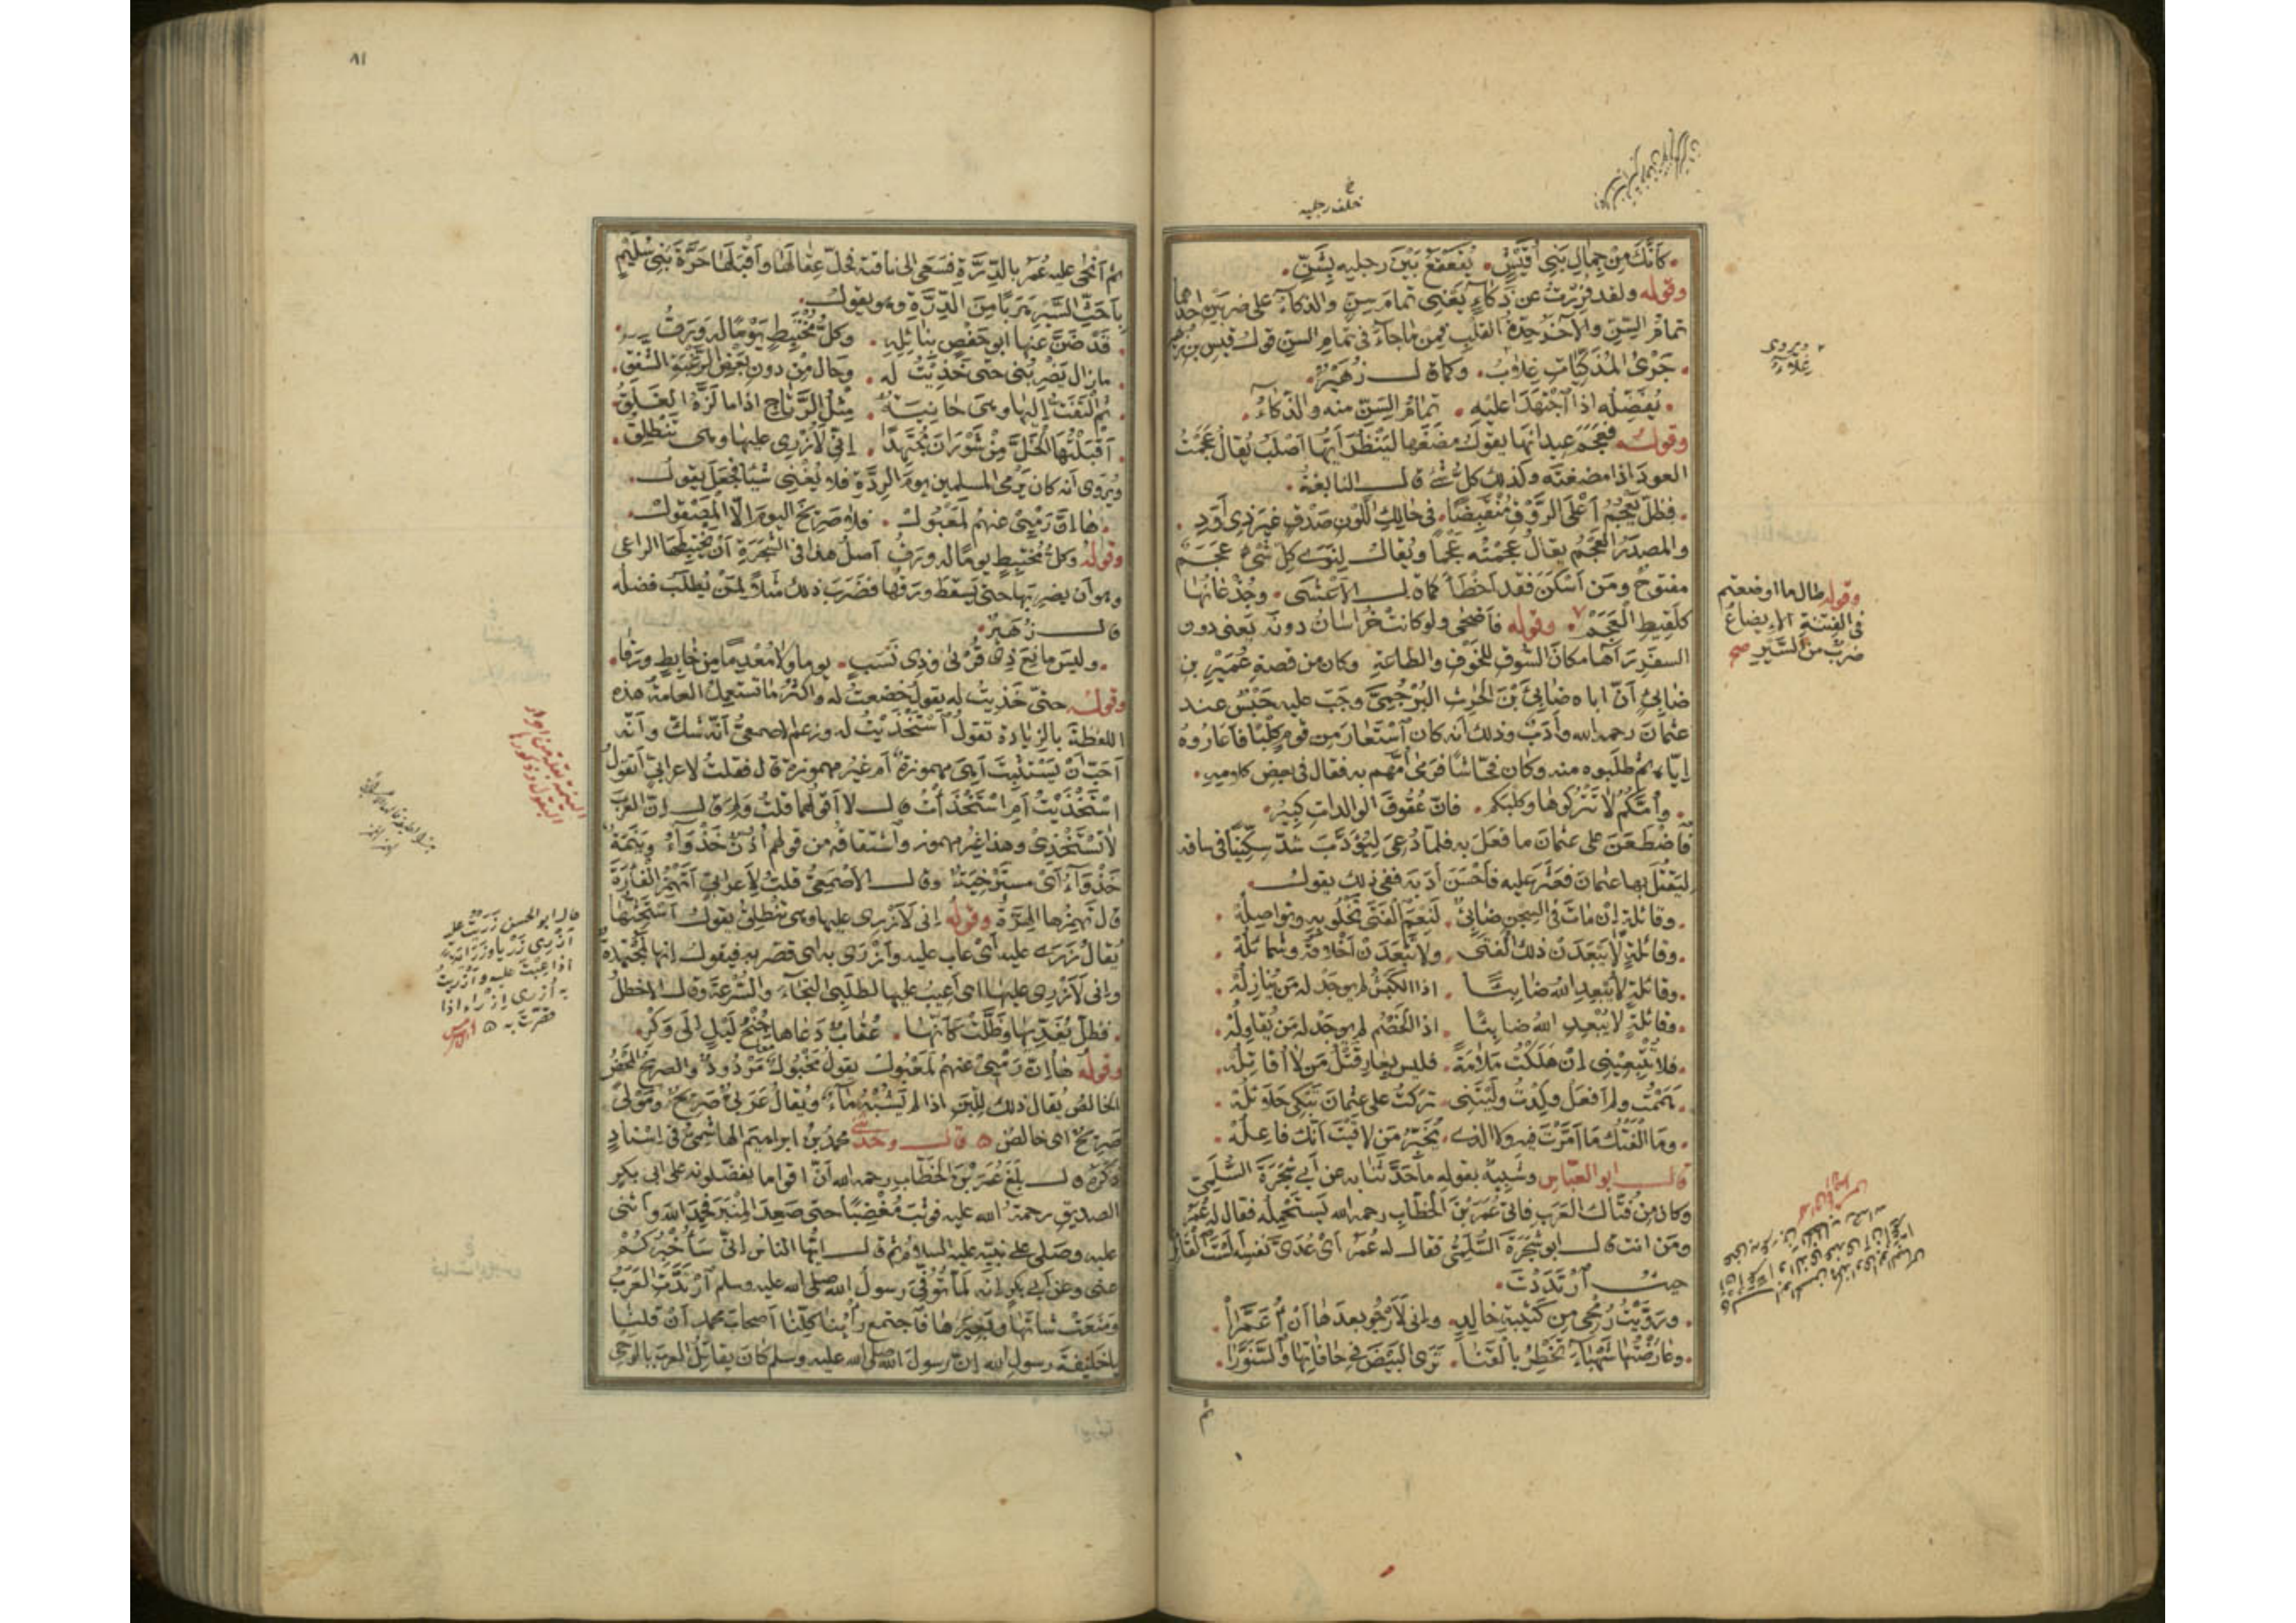 خلف رجليه
كَأَنَّكَ مِنْ جِمَالِ بَنِي أُقَيْشٍ . يُقَعْقَعُ بَيْنَ رجليه بِشَنِّ .
وقوله ولقد فُرِرْتُ عن ذَكاءٍ يَعْنِي تمامَ سِنٍّ والذكاءُ على ضربَيْنِ احدهما
تمامُ السِنِّ والآخَرُ حِدَّةُ القَلْبِ فمن ما جاءَ في تمامِ السِنِّ قولُ قيسِ بن زهير
. جَرْىُ المُذَكِّيَاتِ غِلَابٌ . وكما قال زُهَيْرٌ .
. يُفَضِّلُه اذا اجْتَهَدَا عليْهِ . تمامُ السِنِّ منه والذكاءُ .
وقوله فعَجَمَ عيدانَها يقول مضَغَها ليَنْظُرَ أَيُّها أَصْلَبُ يُقالُ عَجَمْتُ
العودَ اذا مضغتَه وكذلك كلُّ شَىْءٍ قال النابغةُ .
. فظَلَّ يَعْجُمُ أَعْلَى الرَّوْقِ مُنْقَبِضًا . في حالِكِ اللَّوْنِ صَدْقٍ غيرِ ذِى أَوَدِ .
والمصدَرُ العَجْمُ يقالُ عَجَمْتُه عَجْمًا ويُقالُ لِنَوَى كلِّ شَىْءٍ عَجَمٌ
مفتوحٌ ومَن أَسْكَنَ فقد أَخْطَأَ كما قال الأَعْشَى . وجُذْعَانُها
كَلَقِيطِ العَجَمْ . وقوله فأَضْحَى ولو كانت خُرَاسَانُ دونَه يَعْنى دون
السفَرِ رَآها مكانَ السُّوقِ للخَوْفِ والطاعةِ وكان من قصةِ عُمَيْرِ بن
ضابِئٍ أَنَّ أباه ضابِئَ بْنَ الحرثِ البُرْجُمِىَّ وجَبَ عليه حَبْسٌ عند
عثمانَ رحمه الله وأَدَبٌ وذلك أنه كان اسْتَعَارَ من قومٍ كلْبًا فأَعَارُوهُ
إيّاه ثم طلَبوه منه وكان فَحَّاشًا فرَمَى أُمَّهم به فقال في بعض كلامه .
. وأُمَّكُمُ لا تَتْرُكُوها وكَلْبَكم . فإنَّ عُقُوقَ الوالداتِ كبيرُ .
فاضْطَغَنَ على عثمانَ ما فعَلَ به فلمّا دُعِىَ لِيُؤَدَّبَ شَدَّ سِكِّينًا في ساقه
ليَقْتُلَ بها عثمانَ فعُثِرَ عليه فأَحْسَنَ أَدَبَه ففي ذلك يقول .
. وقائلةٍ إنْ ماتَ في السِجنِ ضابئٌ . لَنِعْمَ الفَتَى نَخْلُو به ونواصِلُهْ .
. وقائلةٍ لا يَبْعَدَنْ ذلك الفَتَى . ولا تَبْعَدَنْ أَخْلاقُهُ وشمائلُهْ .
. وقائلةٍ لا يُبْعِدِ اللهُ ضابِئًا . اذا الكَبْشُ لم يوجَدْ له مَن يُنازِلُهْ .
. وقائلةٍ لا يُبْعِدِ اللهُ ضابِئًا . اذا الخَصْمُ لم يوجَدْ له مَن يُقاوِلُهْ .
. فلا تُتْبِعِيني إنْ هَلَكْتُ مَلامَةً . فليس بعارٍ قَتْلُ مَن لا أُقاتِلُهْ .
. هَمَمْتُ ولم أَفْعَلْ وكِدْتُ ولَيْتَنِى . تركتُ على عثمانَ تَبْكِى حلائلُهْ .
. وما الفَتْكُ ما أَمَّرْتَ فيه ولا الذى . تُخَبِّرُ مَن لاقَيْتَ أنّك فاعِلُهْ .
قال ابو العبّاس وشَبِيهٌ بقوله ما حَدَّثَنا به عن أبي شَجَرَةَ السُّلَمِىِّ
وكان من فُتَّاكِ العَرَبِ فأتى عُمَرَ بْنَ الخَطَّابِ رحمه الله لِيَسْتَحْمِلَه فقال له عُمَرُ
ومَن انت قال ابو شَجَرَةَ السُّلَمِىُّ فقال له عُمَرُ أَىْ عُدَىَّ نفسِه أَلَسْتَ القَائِلَ
حيثُ ارْتَدَدْتَ .
. ورَوَّيْتُ رُمْحِى مِن كَتِيبةِ خالدٍ . وإنى لَأَرْجُو بعدَها أنْ أُعَمَّرَا .
. وعارَضْتُها شَهْبَاءَ تَخْطِرُ بالقَنَا . تَرَى البَيْضَ في حافاتِها والسَّنَوَّرَا .
ثم
ويروى
غِلَاءٌ
وقوله طال ما اوضعتم
في الفتنة الإيضاعُ
ضربٌ من السَّيرِ صح
٨١
ثم أَنْحَى عليه عُمَرُ بالدِّرَّةِ فسَعَى الى ناقته فحَلَّ عِقالَها وأَقْبَلَها حَرَّةَ بَنِي سُلَيْمٍ
بأَحَثِّ السَّيْرِ هَرَبًا مِنَ الدِّرَّةِ وهو يقول .
. قَدْ ضَنَّ عنها ابو حَفْصٍ بنائلِهِ . وكلُّ مُخْتَبِطٍ يَوْمًا له وَرَقُ .
. مازال يَضْرِبُنى حتّى خَذِيتُ له . وحال مِنْ دونِ بَعْضِ الرَّغْبَةِ الشَّفَقُ .
. ثم الْتَفَتُّ إليها وهى حانِيَةٌ . مِثْلَ الرِّتاجِ اذا ما لَزَّهُ الغَلَقُ .
. أَقْبَلْتُها الخَلَّ مِنْ شَوْرَانَ مُجْتَهِدًا . إنّي لَأُزْرِى عليها وهى تَنْطَلِقُ .
ويُروَى أنه كان يَرْمِى المسلمين يومَ الرِّدَّةِ فلا يُغْنِى شيئًا فجَعَلَ يقول .
. ها إنَّ رَمْيِى عنهمُ لَمَعْبُولْ . فلا صَرِيحَ اليومَ إلّا المَصْقُولْ .
وقوله وكلُّ مُخْتَبِطٍ يومًا له ورَقُ أصلُ هذا في الشَّجَرَةِ أنْ يَخْتَبِطَها الراعى
وهو أن يضربَها حتى يَسْقُطَ ورَقُها فضَرَبَ ذلك مثَلًا لِمَنْ يُطْلَبُ فضلُه
قال زُهَيْرٌ .
. وليس مانِعَ ذِى قُرْبَى وذِى نَسَبٍ . يوما ولا مُعْدِمًا من خابِطٍ ورَقَا .
وقوله حتى خَذِيتُ له يقول خضعتُ له وأكثرُ ما تستعمل العامة هذه
اللفظةَ بالزيادة تقول اسْتَخْذَيْتُ له وزعم الاصمعىُّ أنه شكَّ وأنّه
أحَبَّ أنْ يَسْتَثْبِتَ أهى مهموزةٌ أم غيرُ مهموزة قال فقلتُ لأعرابيٍّ أتقول
اسْتَخْذَيْتُ أمِ اسْتَخْذَأْتُ قال لا أقولُهما قلتُ ولِمَ قال إنّ العرَبَ
لا تَسْتَخْذِى وهذا غيرُ مهموز واشتقاقُه من قولهم أُذُنٌ خَذْوَاءُ ويَنَمَةٌ
خَذْوَاءُ أى مسترْخِيَةٌ وقال الأصمعىُّ قلتُ لأعرابيٍّ أَتَهْمِزُ الفأرَةَ
قال تَهْمِزُها الهِرَّةُ وقوله إنى لَأُزْرِى عليها وهى تَنْطَلِقُ يقول أستَحِثُّها
يُقالُ زَرَى عليه أىْ عاب عليه وأَزْرَى به اى قصَّر به فيقول إنها لمُجْتَهِدةٌ
وإنى لَأُزْرِى عليها اى أَعِيبُ عليها لطلَبى النَّجاءَ والسُّرْعَةَ وقال الأخطلُ
. فظَلَّ يُفَدِّيها وظَلَّتْ كأَنّها . عُقابٌ دَعاها جُنْحُ لَيْلٍ إلى وَكْرِ .
وقوله ها إنَّ رَمْيِى عنهمُ لَمَعْبُولْ يقول مَخْبُولٌ مَرْدُودٌ والصريحُ المَحْضُ
الخالصُ يُقالُ ذلك للَّبَنِ اذا لم يَشُبْهُ مآءٌ ويُقالُ عَرَبِىٌّ صَرِيحٌ ومَوْلًى
صَرِيحٌ اى خالصٌ ٥ قال وحدثنى محمدُ بن ابراهيمَ الهاشِمىُّ في إسنادٍ
ذَكَرَهُ قال بلَغَ عُمَرَ بْنَ الخَطَّابِ رحمه الله أنّ اقواما يُفَضِّلونه على ابى بكرٍ
الصديقِ رحمةُ الله عليه فوثَبَ مُغْضَبًا حتى صَعِدَ المِنْبَرَ فحَمِدَ اللهَ وأثنى
عليه وصَلَّى على نبيّه عليه السلام ثم قال ايّها الناسُ إنّي سَأُخْبِرُكُمْ
عنى وعن أبى بكرٍ إنّه لمّا تُوُفِّىَ رسولُ الله صلى الله عليه وسلم ارْتَدَّتِ العَرَبُ
ومَنَعَتْ شاتَها وبَعيرَها فاجتمع رأيُنا كلِّنا أصحابَ محمدٍ أنْ قلنا
يا خليفةَ رسولِ الله إنّ رسولَ الله صلى الله عليه وسلم كان يقاتِلُ العربَ بالوحى
قال ابو الحسن زَرَيْتُ عليه
أَزْرِى زَرْيًا وزِرَايَةً
اذا عِبْتَ عليه وأَزْرَيْتُ
به أُزْرِى إزْراءً اذا
قصَّرتَ به ٥